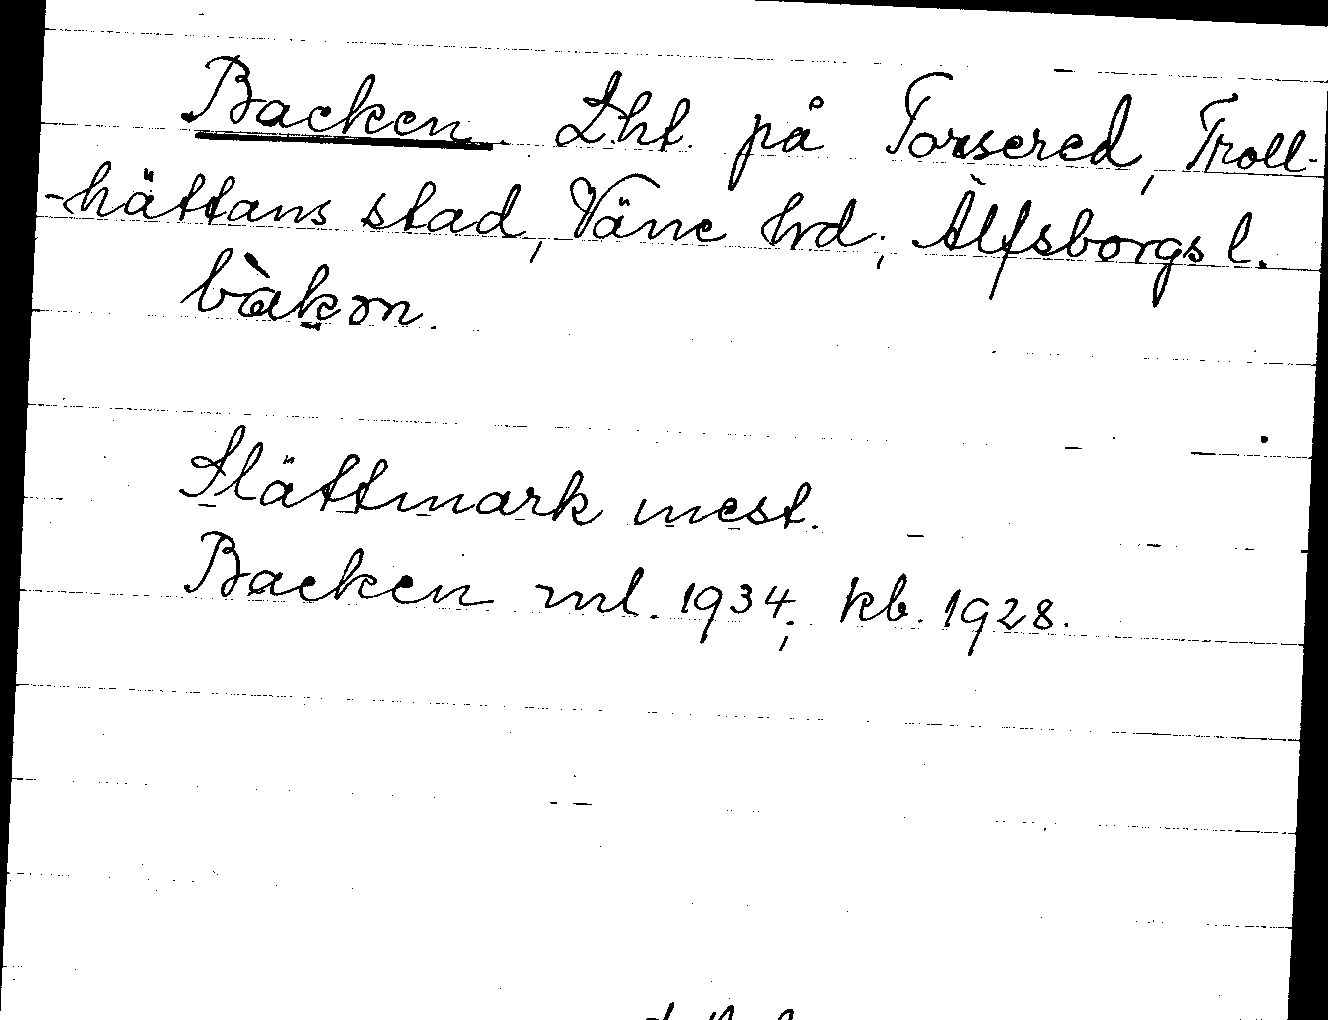 Backen. Lht. på Torsered, Troll-
-hättans stad, Väne hrd; Älfsborgs l.
bàkən.
Slättmark mest.
Backen ml. 1934; kb. 1928.